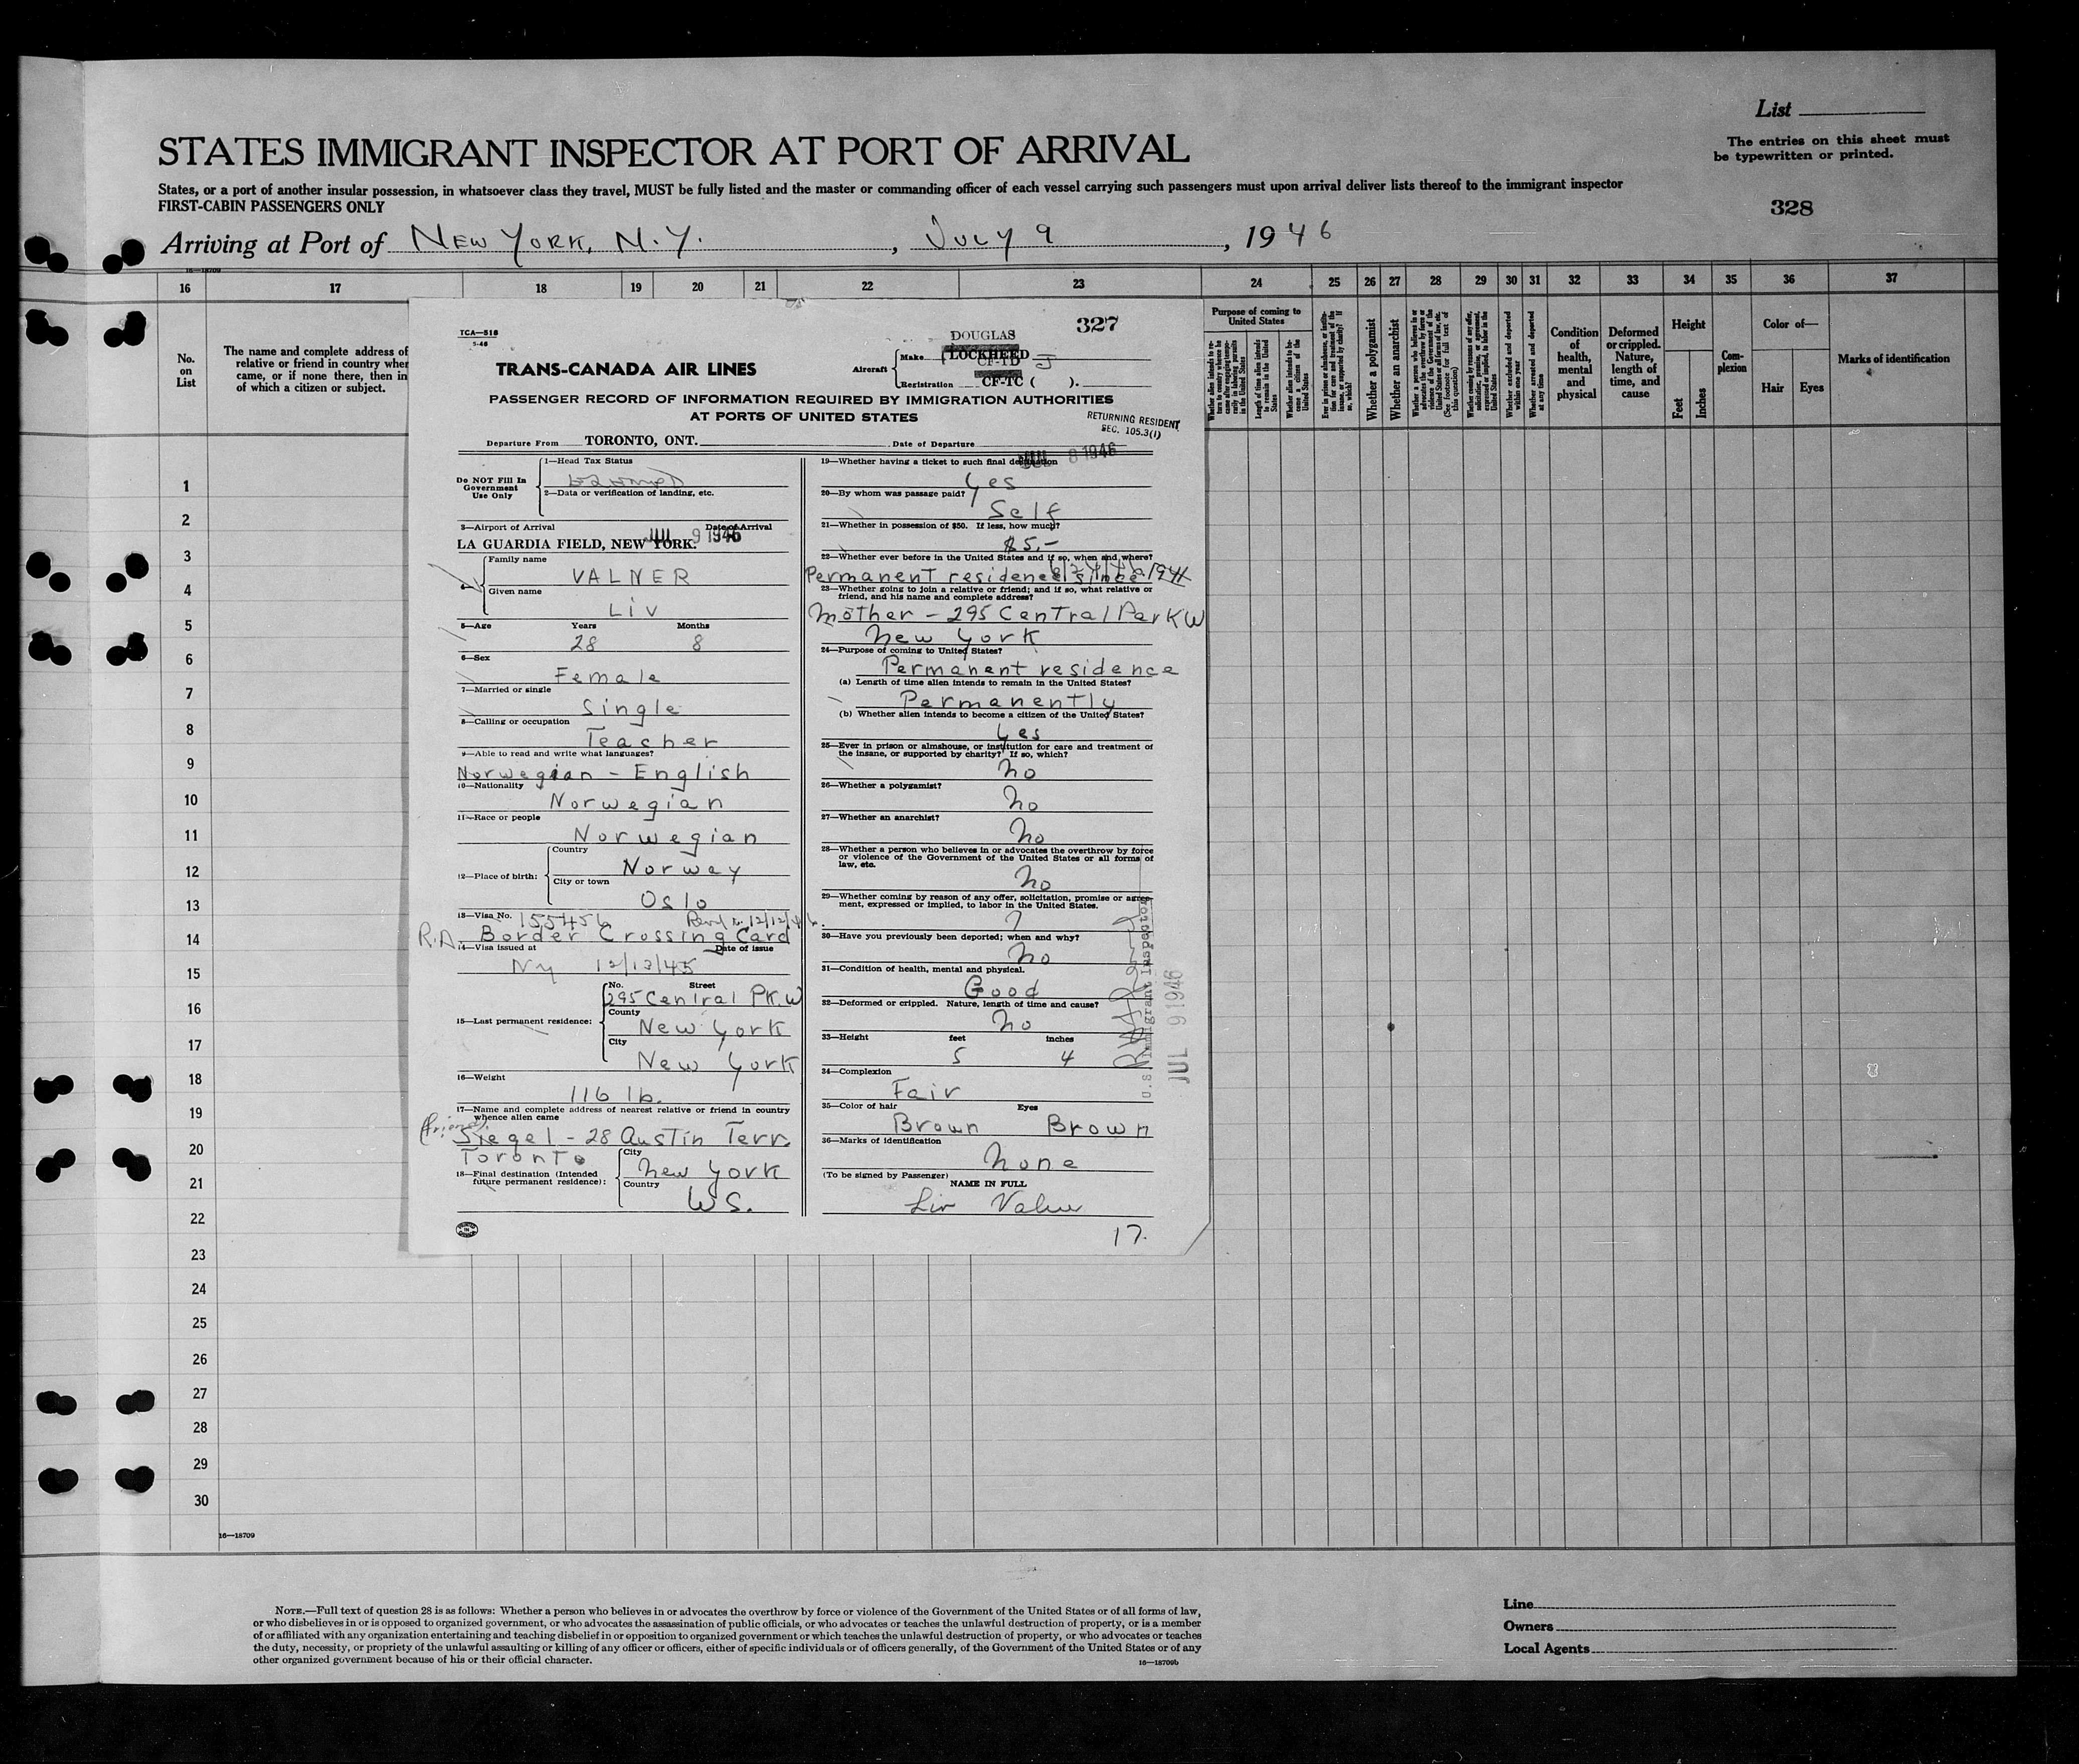 List
The entries on this sheet must
be typewritten or printed.
STATES IMMIGRANT INSPECTOR AT PORT OF ARRIVAL
States, or a port of another insular possession, in whatsoever class they travel, MUST be fully listed and the master or commanding officer of each vessel carrying such passengers must upon arrival deliver lists thereof to the immigrant inspector
FIRST-CABIN PASSENGERS ONLY
328
Arriving at Port of NEW YORK, N.Y. , JULY 9 , 1946
16—18709
16 17 18 19 20 21 22 23 24 25 26 27 28 29 30 31 32 33 34 35 36 37
No.
on
List
The name and complete address of
relative or friend in country when
came, or if none there, then in
of which a citizen or subject.
Purpose of coming to
United States
Whether a polygamist
Whether an anarchist
Condition
of
health,
mental
and
physical
Deformed
or crippled.
Nature,
length of
time, and
cause
Height
Feet
Inches
Com-
plexion
Color of—
Hair
Eyes
Marks of identification
1
2
3
4
5
6
7
8
9
10
11
12
13
14
15
16
17
18
19
20
21
22
23
24
25
26
27
28
29
30
TCA—518
5-46
327
TRANS-CANADA AIR LINES
DOUGLAS
Aircraft
Make LOCKHEED
Registration CF-TC ( ).
PASSENGER RECORD OF INFORMATION REQUIRED BY IMMIGRATION AUTHORITIES
AT PORTS OF UNITED STATES
RETURNING RESIDENT
SEC. 105.3(1)
Departure From TORONTO, ONT. Date of Departure
JUL 8 1946
Do NOT Fill In
Government
Use Only
1—Head Tax Status
2—Data or verification of landing, etc.
3—Airport of Arrival Date of Arrival
LA GUARDIA FIELD, NEW YORK. JUL 9 1946
Family name
VALNER
Given name
Liv
5—Age Years Months
28 8
6—Sex
Female
7—Married or single
Single
8—Calling or occupation
Teacher
9—Able to read and write what languages?
Norwegian - English
10—Nationality
Norwegian
11—Race or people
Norwegian
12—Place of birth:
Country
Norway
City or town
Oslo
13—Visa No. 155456 12/12/46
R.A. Border Crossing Card
14—Visa issued at Date of issue
NY 12/13/45
15—Last permanent residence:
No. Street
295 Central PK.W
County
New York
City
New York
16—Weight
116 lb.
17—Name and complete address of nearest relative or friend in country
whence alien came
(friend)
Siegel - 28 Austin Terr.
Toronto
18—Final destination (Intended
future permanent residence):
City
New York
Country
US.
19—Whether having a ticket to such final destination
Yes
20—By whom was passage paid?
Self
21—Whether in possession of $50. If less, how much?
$5.-
22—Whether ever before in the United States and if so, when and where?
Permanent residence since 1941
23—Whether going to join a relative or friend; and if so, what relative or
friend, and his name and complete address?
Mother - 295 Central Park W
New York
24—Purpose of coming to United States?
Permanent residence
(a) Length of time alien intends to remain in the United States?
Permanently
(b) Whether alien intends to become a citizen of the United States?
Yes
25—Ever in prison or almshouse, or institution for care and treatment of
the insane, or supported by charity? If so, which?
No
26—Whether a polygamist?
No
27—Whether an anarchist?
No
28—Whether a person who believes in or advocates the overthrow by force
or violence of the Government of the United States or all forms of
law, etc.
No
29—Whether coming by reason of any offer, solicitation, promise or agree-
ment, expressed or implied, to labor in the United States.
?
30—Have you previously been deported; when and why?
No
31—Condition of health, mental and physical.
Good
32—Deformed or crippled. Nature, length of time and cause?
No
33—Height feet inches
5 4
34—Complexion
Fair
35—Color of hair Eyes
Brown Brown
36—Marks of identification
None
(To be signed by Passenger)
NAME IN FULL
Liv Valner
17.
U.S. Immigrant Inspector
JUL 9 1946
16—18709
NOTE.—Full text of question 28 is as follows: Whether a person who believes in or advocates the overthrow by force or violence of the Government of the United States or of all forms of law,
or who disbelieves in or is opposed to organized government, or who advocates the assassination of public officials, or who advocates or teaches the unlawful destruction of property, or is a member
of or affiliated with any organization entertaining and teaching disbelief in or opposition to organized government or which teaches the unlawful destruction of property, or who advocates or teaches
the duty, necessity, or propriety of the unlawful assaulting or killing of any officer or officers, either of specific individuals or of officers generally, of the Government of the United States or of any
other organized government because of his or their official character.
16—18709b
Line
Owners
Local Agents